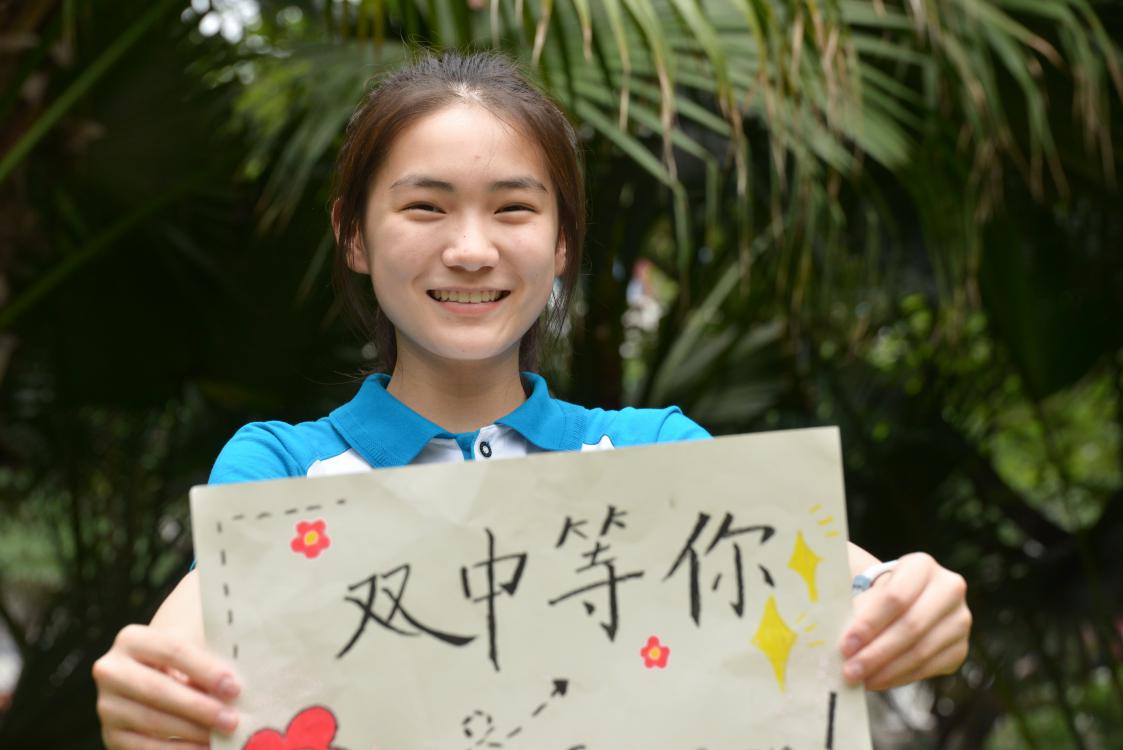 双中等你